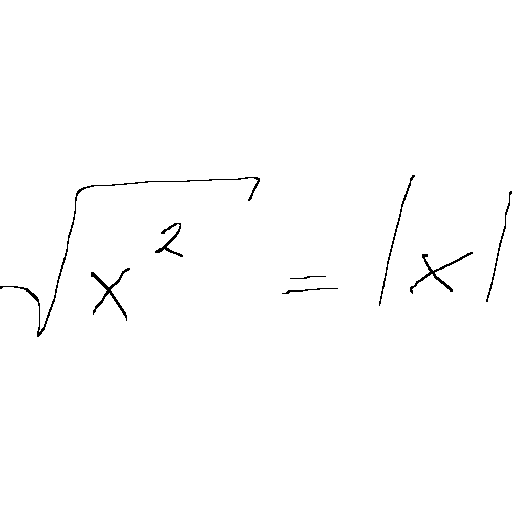 √x² = |x|